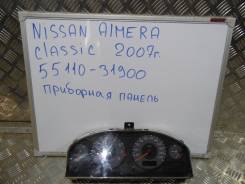 NISSAN AlMERA
classic 2007г.
55110-31900
приборная панель